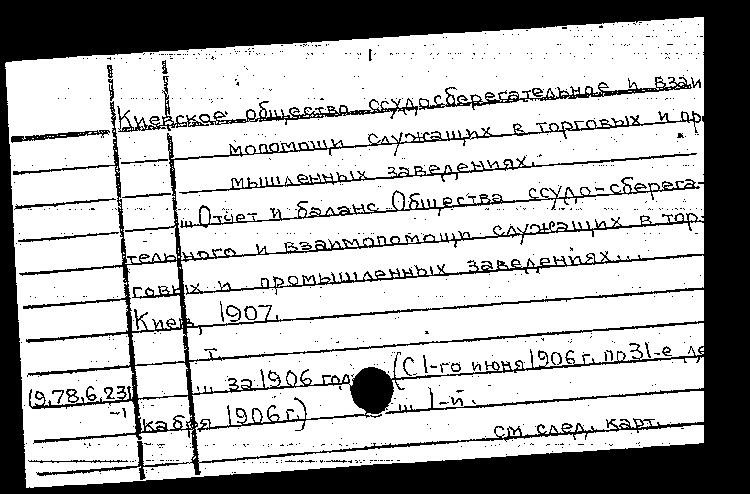 1
Киевское общество ссудосберегательное и взаи
мопомощи служащих в торговых и пр
мышленных заведениях.
... Отчет и баланс Общества ссудо-сберега-
тельного и взаимопомощи служащих в тор-
говых и промышленных заведениях...
Киев, 1907.
т.
... за 1906 год (С 1-го июня 1906 г. по 31-е де
19.78.6.231
-1
кабря 1906 г.) ... 1-й.
см. след. карт.